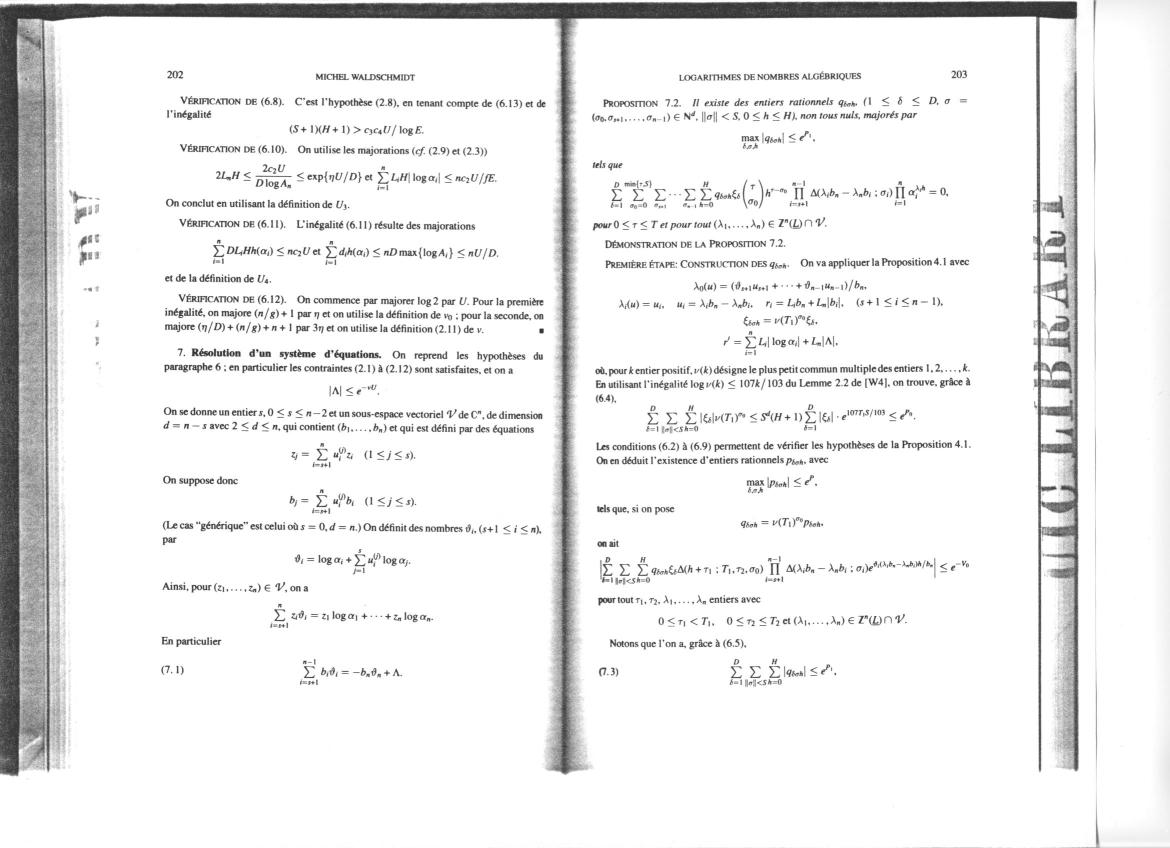 202 MICHEL WALDSCHMIDT
VÉRIFICATION DE (6.8). C'est l'hypothèse (2.8), en tenant compte de (6.13) et de
l'inégalité
(S + 1)(H + 1) > c₃c₄U / log E.
VÉRIFICATION DE (6.10). On utilise les majorations (cf. (2.9) et (2.3))
2LₙH ≤ 2c₂U / (D log Aₙ) ≤ exp{ηU/D} et ∑_{i=1}^{n} LᵢH| log αᵢ| ≤ nc₂U/fE.
On conclut en utilisant la définition de U₃.
VÉRIFICATION DE (6.11). L'inégalité (6.11) résulte des majorations
∑_{i=1}^{n} DLᵢHh(αᵢ) ≤ nc₂U et ∑_{i=1}^{n} dᵢh(αᵢ) ≤ nD max{log Aᵢ} ≤ nU/D.
et de la définition de U₄.
VÉRIFICATION DE (6.12). On commence par majorer log 2 par U. Pour la première
inégalité, on majore (n/g) + 1 par η et on utilise la définition de ν₀ ; pour la seconde, on
majore (η/D) + (n/g) + n + 1 par 3η et on utilise la définition (2.11) de ν. ■
7. Résolution d'un système d'équations. On reprend les hypothèses du
paragraphe 6 ; en particulier les contraintes (2.1) à (2.12) sont satisfaites, et on a
|Λ| ≤ e^{−νU}.
On se donne un entier s, 0 ≤ s ≤ n−2 et un sous-espace vectoriel 𝒱 de Cⁿ, de dimension
d = n − s avec 2 ≤ d ≤ n, qui contient (b₁, . . . , bₙ) et qui est défini par des équations
zⱼ = ∑_{i=s+1}^{n} uᵢ^{(j)} zᵢ (1 ≤ j ≤ s).
On suppose donc
bⱼ = ∑_{i=s+1}^{n} uᵢ^{(j)} bᵢ (1 ≤ j ≤ s).
(Le cas "générique" est celui où s = 0, d = n.) On définit des nombres ϑᵢ, (s+1 ≤ i ≤ n),
par
ϑᵢ = log αᵢ + ∑_{j=1}^{s} uᵢ^{(j)} log αⱼ.
Ainsi, pour (z₁, . . . , zₙ) ∈ 𝒱, on a
∑_{i=s+1}^{n} zᵢϑᵢ = z₁ log α₁ + · · · + zₙ log αₙ.
En particulier
(7.1) ∑_{i=s+1}^{n−1} bᵢϑᵢ = −bₙϑₙ + Λ.
LOGARITHMES DE NOMBRES ALGÉBRIQUES 203
PROPOSITION 7.2. Il existe des entiers rationnels q_{δσh}, (1 ≤ δ ≤ D, σ =
(σ₀, σ_{s+1}, . . . , σ_{n−1}) ∈ Nᵈ, ‖σ‖ < S, 0 ≤ h ≤ H), non tous nuls, majorés par
max_{δ,σ,h} |q_{δσh}| ≤ e^{P₁},
tels que
∑_{δ=1}^{D} ∑_{σ₀=0}^{min{τ,S}} ∑_{σ_{s+1}} · · · ∑_{σ_{n−1}} ∑_{h=0}^{H} q_{δσh}ξ_δ (τ σ₀) h^{τ−σ₀} ∏_{i=s+1}^{n−1} Δ(λᵢbₙ − λₙbᵢ ; σᵢ) ∏_{i=1}^{n} αᵢ^{λᵢh} = 0,
pour 0 ≤ τ ≤ T et pour tout (λ₁, . . . , λₙ) ∈ Zⁿ(L) ∩ 𝒱.
DÉMONSTRATION DE LA PROPOSITION 7.2.
PREMIÈRE ÉTAPE: CONSTRUCTION DES q_{δσh}. On va appliquer la Proposition 4.1 avec
λ₀(u) = (ϑ_{s+1}u_{s+1} + · · · + ϑ_{n−1}u_{n−1})/bₙ,
λᵢ(u) = uᵢ, uᵢ = λᵢbₙ − λₙbᵢ, rᵢ = Lᵢbₙ + Lₙ|bᵢ|, (s + 1 ≤ i ≤ n − 1),
ξ_{δσh} = ν(T₁)^{σ₀}ξ_δ,
r′ = ∑_{i=1}^{n} Lᵢ| log αᵢ| + Lₙ|Λ|,
où, pour k entier positif, ν(k) désigne le plus petit commun multiple des entiers 1, 2, . . . , k.
En utilisant l'inégalité log ν(k) ≤ 107k/103 du Lemme 2.2 de [W4], on trouve, grâce à
(6.4),
∑_{δ=1}^{D} ∑_{‖σ‖<S} ∑_{h=0}^{H} |ξ_δ|ν(T₁)^{σ₀} ≤ Sᵈ(H + 1) ∑_{δ=1}^{D} |ξ_δ| · e^{107T₁S/103} ≤ e^{P₀}.
Les conditions (6.2) à (6.9) permettent de vérifier les hypothèses de la Proposition 4.1.
On en déduit l'existence d'entiers rationnels p_{δσh}, avec
max_{δ,σ,h} |p_{δσh}| ≤ e^{P},
tels que, si on pose
q_{δσh} = ν(T₁)^{σ₀}p_{δσh},
on ait
|∑_{δ=1}^{D} ∑_{‖σ‖<S} ∑_{h=0}^{H} q_{δσh}ξ_δΔ(h + τ₁ ; T₁, τ₂, σ₀) ∏_{i=s+1}^{n−1} Δ(λᵢbₙ − λₙbᵢ ; σᵢ)e^{ϑᵢ(λᵢbₙ−λₙbᵢ)h/bₙ}| ≤ e^{−V₀}
pour tout τ₁, τ₂, λ₁, . . . , λₙ entiers avec
0 ≤ τ₁ < T₁, 0 ≤ τ₂ ≤ T₂ et (λ₁, . . . , λₙ) ∈ Zⁿ(L) ∩ 𝒱.
Notons que l'on a, grâce à (6.5),
(7.3) ∑_{δ=1}^{D} ∑_{‖σ‖<S} ∑_{h=0}^{H} |q_{δσh}| ≤ e^{P₁},
LIBRARY